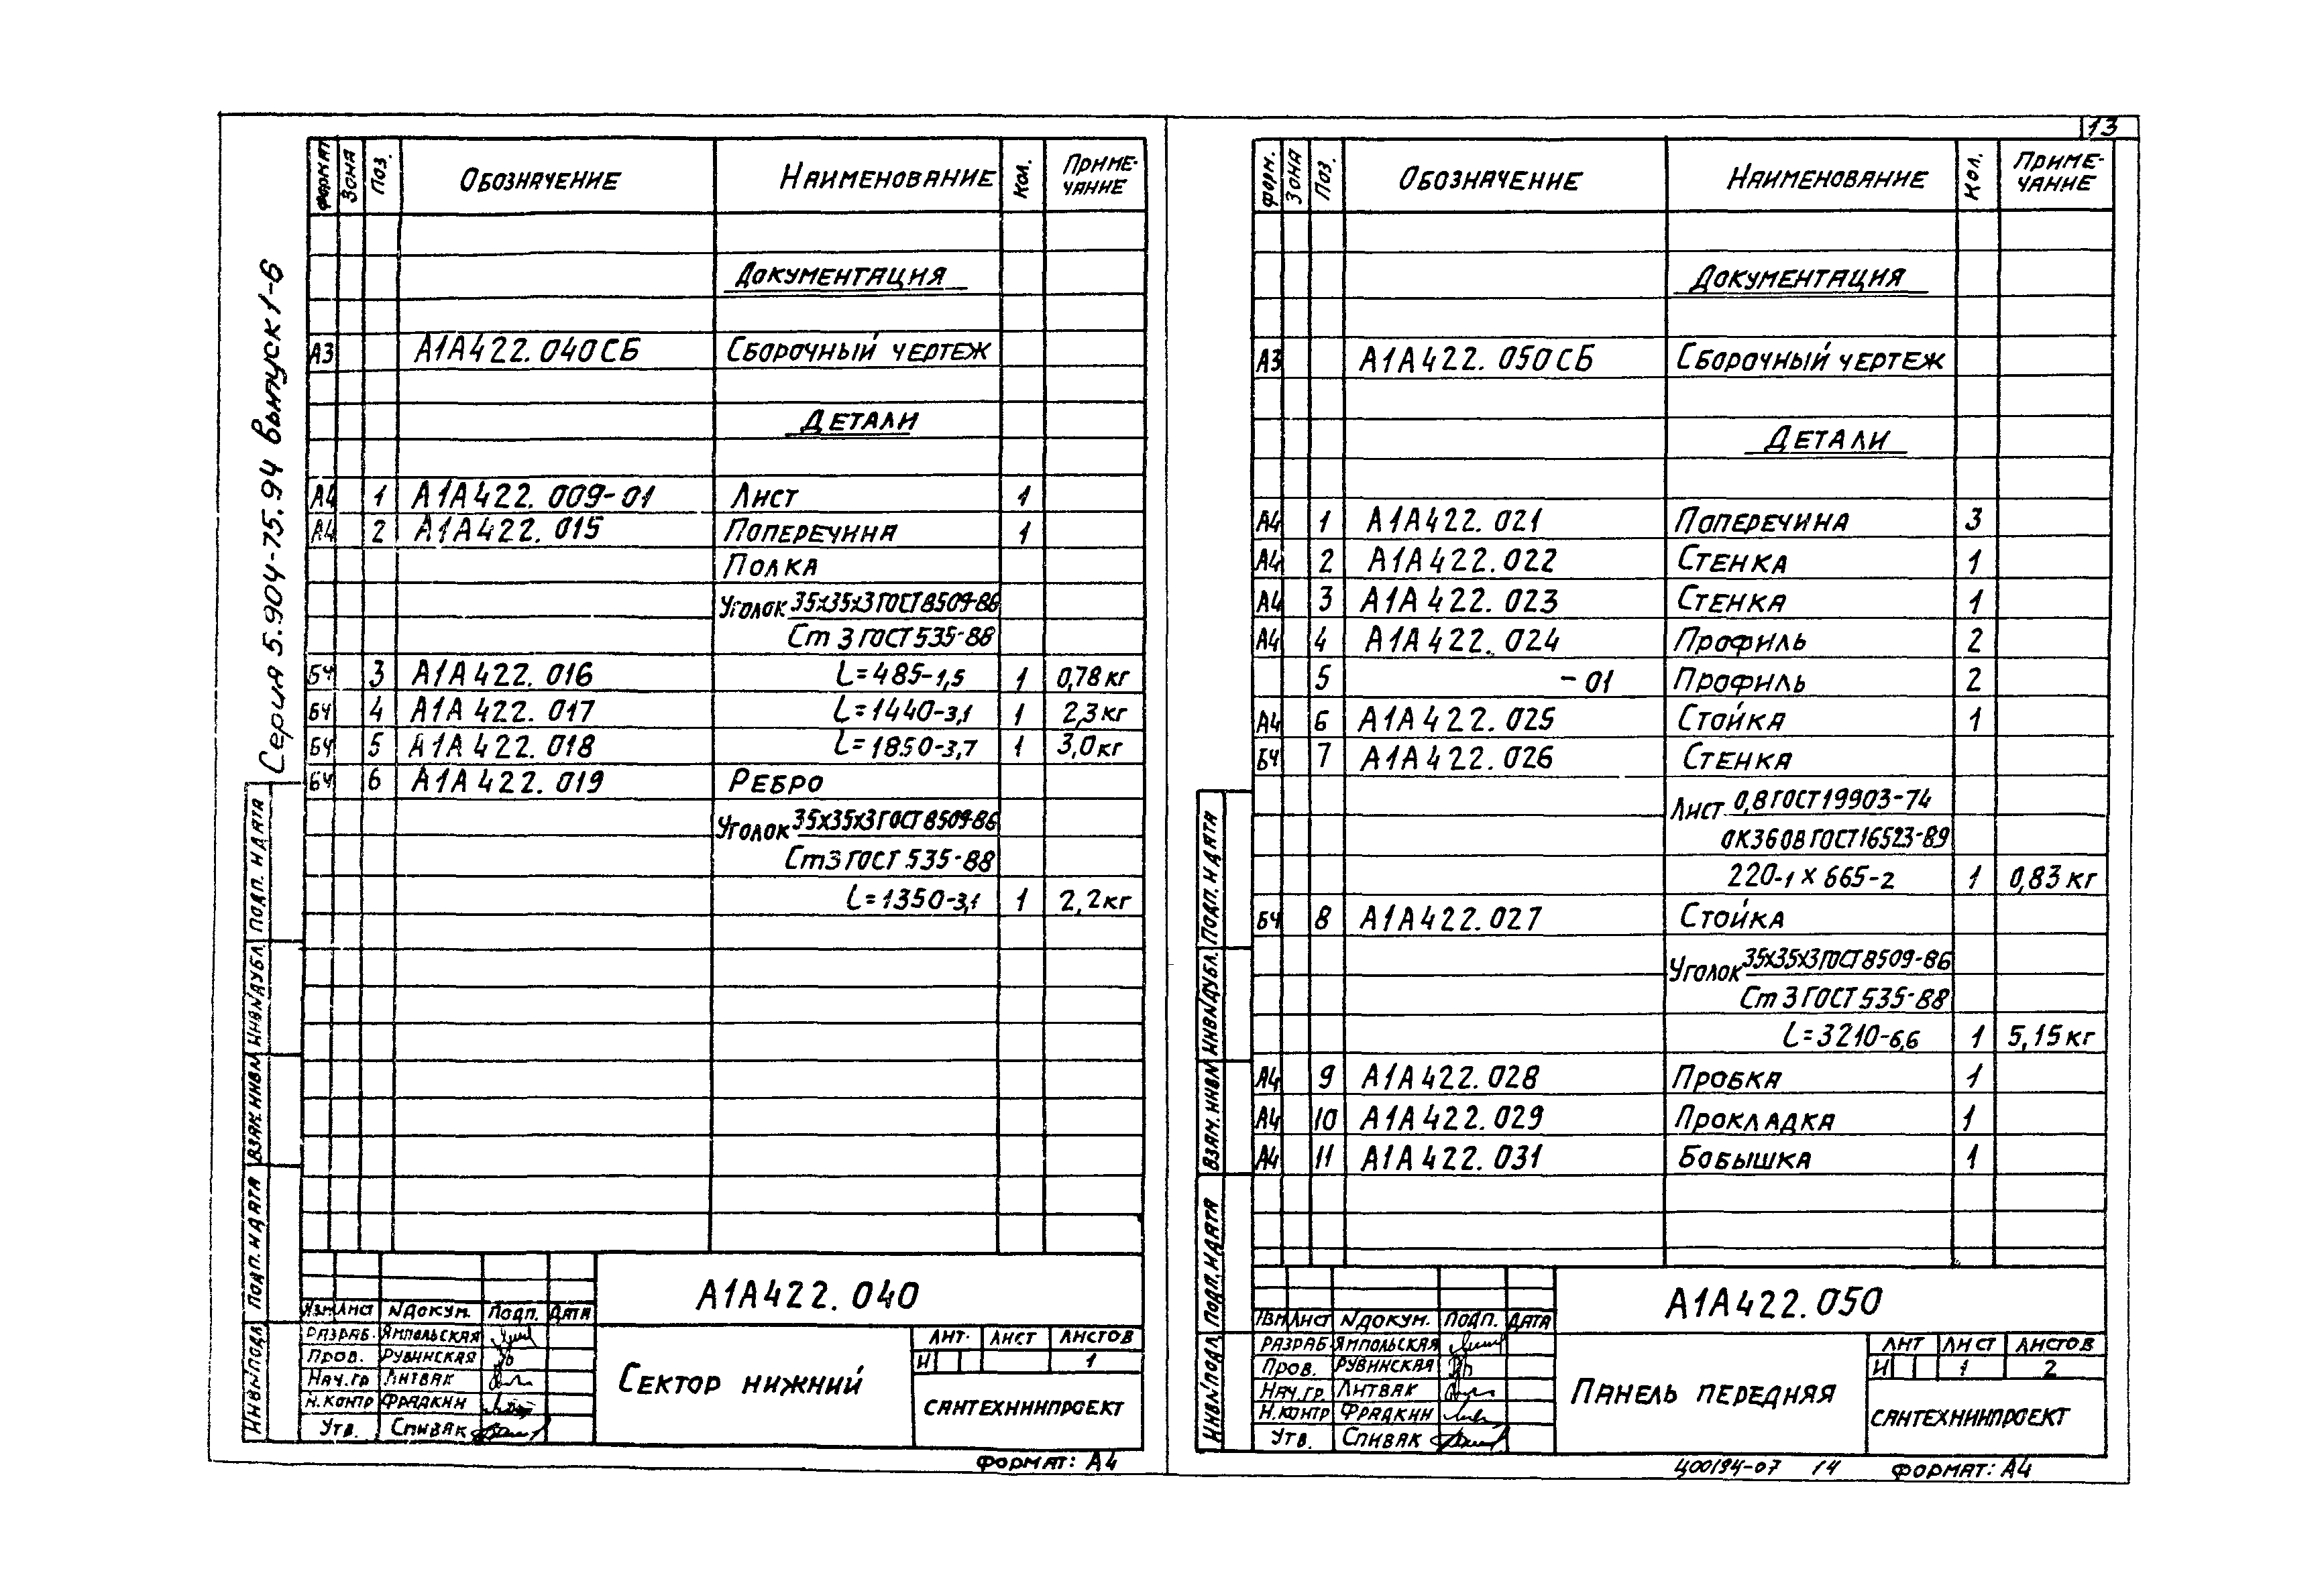 13
Серия 5.904-75.94 выпуск 1-6
Формат Зона Поз. Обозначение Наименование Кол. Приме-
чание
Документация
А3 А1А422.040СБ Сборочный чертеж
Детали
А4 1 А1А422.009-01 Лист 1
А4 2 А1А422.015 Поперечина 1
Полка
Уголок 35х35х3 ГОСТ 8509-86
Ст 3 ГОСТ 535-88
БЧ 3 А1А422.016 L=485-1,5 1 0,78 кг
БЧ 4 А1А422.017 L=1440-3,1 1 2,3 кг
БЧ 5 А1А422.018 L=1850-3,7 1 3,0 кг
БЧ 6 А1А422.019 Ребро
Уголок 35х35х3 ГОСТ 8509-86
Ст3 ГОСТ 535-88
L=1350-3,1 1 2,2 кг
Инв.N подл. Подп. и дата Взам. инв.N Инв.N дубл. Подп. и дата
А1А422.040
Изм Лист N докум. Подп. Дата
Разраб. Ямпольская
Пров. Рувинская
Нач.гр Литвак
Н.контр Фрадкин
Утв. Спивак
Сектор нижний
Лит. Лист Листов
И 1
Сантехниипроект
Формат: А4
Форм. Зона Поз. Обозначение Наименование Кол. Приме-
чание
Документация
А3 А1А422.050СБ Сборочный чертеж
Детали
А4 1 А1А422.021 Поперечина 3
А4 2 А1А422.022 Стенка 1
А4 3 А1А422.023 Стенка 1
А4 4 А1А422.024 Профиль 2
5 -01 Профиль 2
А4 6 А1А422.025 Стойка 1
БЧ 7 А1А422.026 Стенка
Лист 0,8 ГОСТ 19903-74
ОК360В ГОСТ 16523-89
220-1 х 665-2 1 0,83 кг
БЧ 8 А1А422.027 Стойка
Уголок 35х35х3 ГОСТ 8509-86
Ст 3 ГОСТ 535-88
L=3210-6,6 1 5,15 кг
А4 9 А1А422.028 Пробка 1
А4 10 А1А422.029 Прокладка 1
А4 11 А1А422.031 Бобышка 1
Инв.N подл. Подп. и дата Взам. инв.N Инв.N дубл. Подп. и дата
А1А422.050
Изм Лист N докум. Подп. Дата
Разраб Ямпольская
Пров. Рувинская
Нач.гр. Литвак
Н.контр Фрадкин
Утв. Спивак
Панель передняя
Лит Лист Листов
И 1 2
Сантехниипроект
Ц00194-07 14 Формат: А4